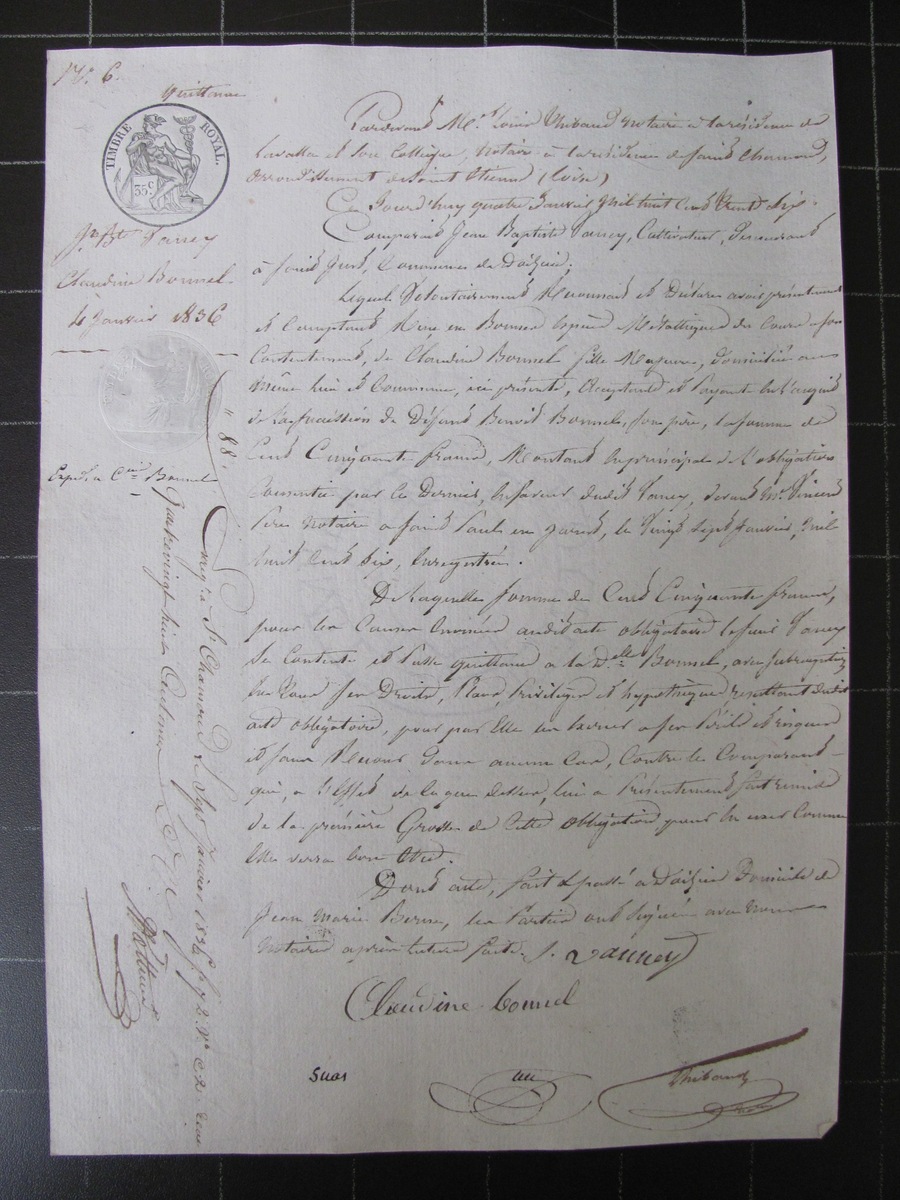 N.° 6.
Quittance
TIMBRE ROYAL.
35 C.
Jn Bte Vaney
Claudine Bonnel
4 Janvier 1836
Pardevant Me. Louis Thibaud notaire à la résidence de
Lavalla et son Collègue, notaire à la résidence de Saint Chamond,
arrondissement de Saint Etienne (Loire)
Ce Jourd'huy quatre Janvier Mil huit Cent Trente Six.
Comparait Jean Baptiste Vaney, Cultivateur, Demeurant
à Saint Just, Commune de Doizieu,
Lequel Volontairement Reconnait et Déclare avoir présentement
et Comptant Reçu en Bonnes Espèces Métalliques du Cours à son
Contentement, de Claudine Bonnel fille Majeure, domiciliée au
même lieu et Commune, ici présente, Acceptant et Payant en l'acquit
de la succession de Défunt Benoit Bonnel, son père, la somme de
Cent Cinquante francs, Montant en principal de l'obligation
Consentie par ce Dernier, en faveur dudit Vaney, devant Me. Vincent
Père Notaire à Saint Paul en Jarret, le Vingt Sept Janvier, Mil
huit Cent Six, Enregistrée.
De laquelle somme de Cent Cinquante francs,
pour les Causes énoncées audit acte obligatoire le sieur Vaney
Se Contente et Passe quittance a la Dlle Bonnel, avec subrogation
en Tous ses Droits, Place, Privilèges et hypothèque résultant dudit
acte obligatoire, pour par Elle en user à ses Périls et risques
et sans Recours dans aucun Cas, Contre le Comparant
qui, a l'Effet de ce que dessus, lui a Présentement fait remise
de la première Grosse de Cette obligation pour en user Comme
Elle verra bon Etre.
Dont acte, fait & passé à Doizieu Domicile de
Jean Marie, les Parties ont Signé avec Nous
Notaires après lecture faite. J. Vanney
Claudine bonnel
Thibaud
" 88.
Expé. à Cine Bonnel
Enreg. à St Chamond le Sept Janvier 183
Quatrevingt huit Centimes